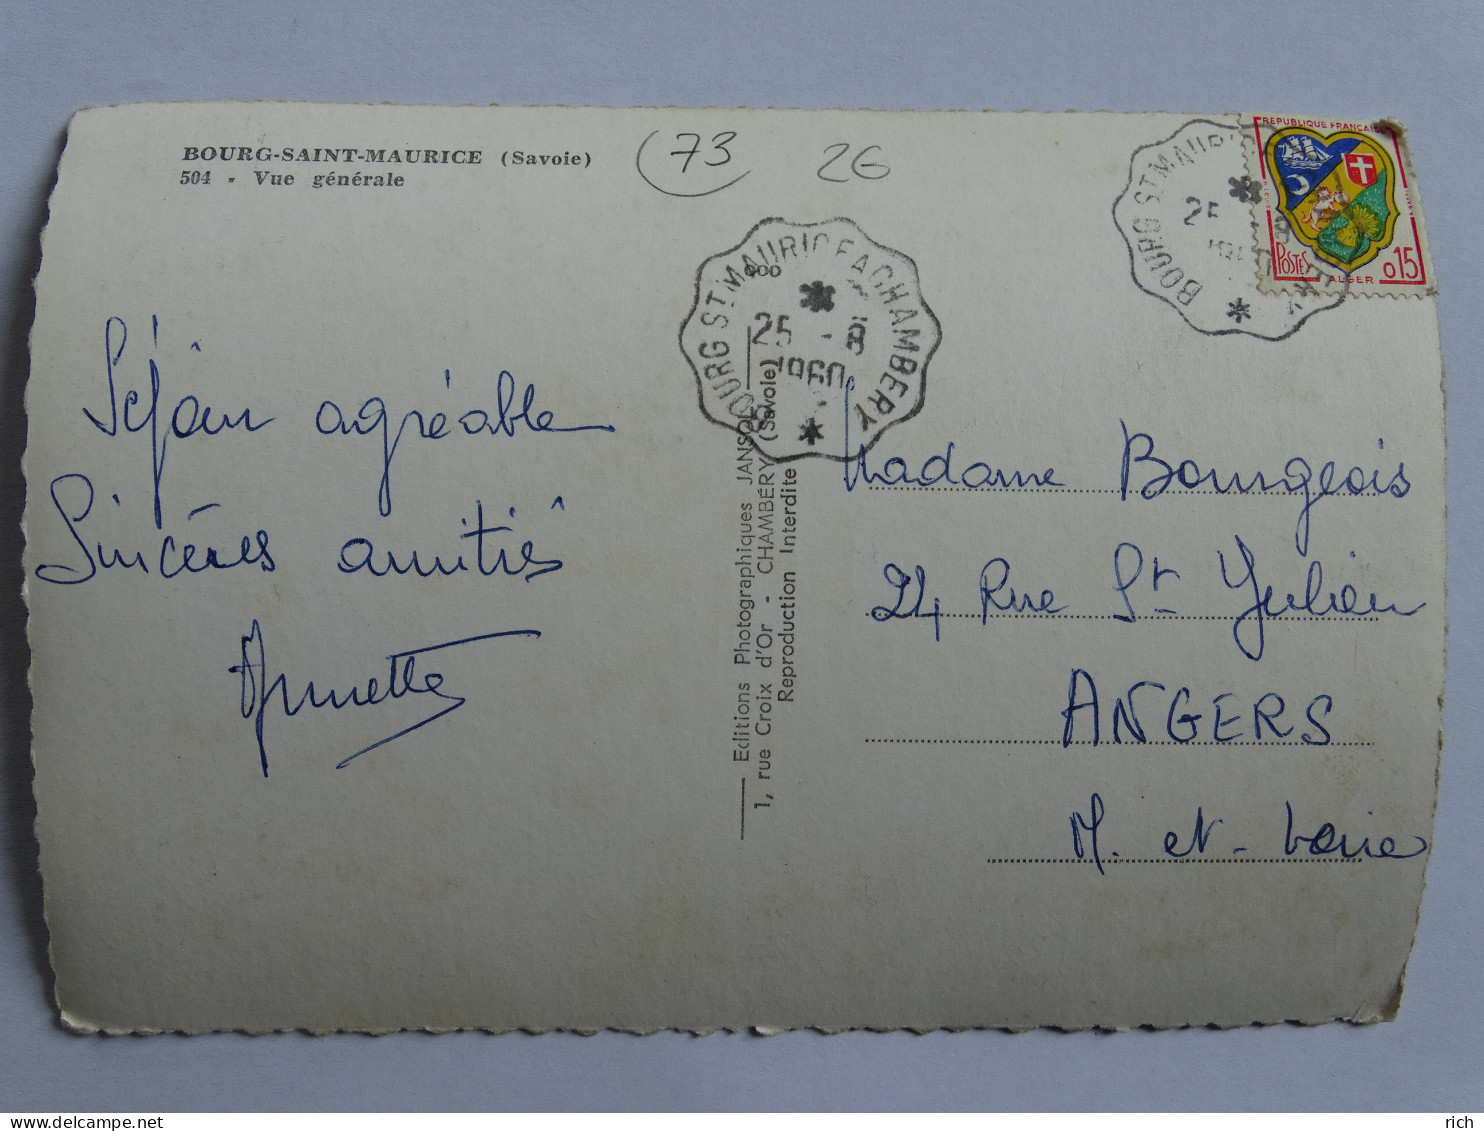 BOURG-SAINT-MAURICE (Savoie)
504 - Vue générale
73
26
BOURG ST MAURICE A CHAMBERY
25 - 8
1960
BOURG ST MAURIC
25
8
REPUBLIQUE FRANÇAISE
POSTES
ALGER
0,15
Séjour agréable
Sincères amitiés
Annette
Editions Photographiques JANSOL
1, rue Croix d'Or - CHAMBÉRY (Savoie)
Reproduction Interdite
Madame Bourgeois
24 Rue St Julien
ANGERS
M. et Loire
rich